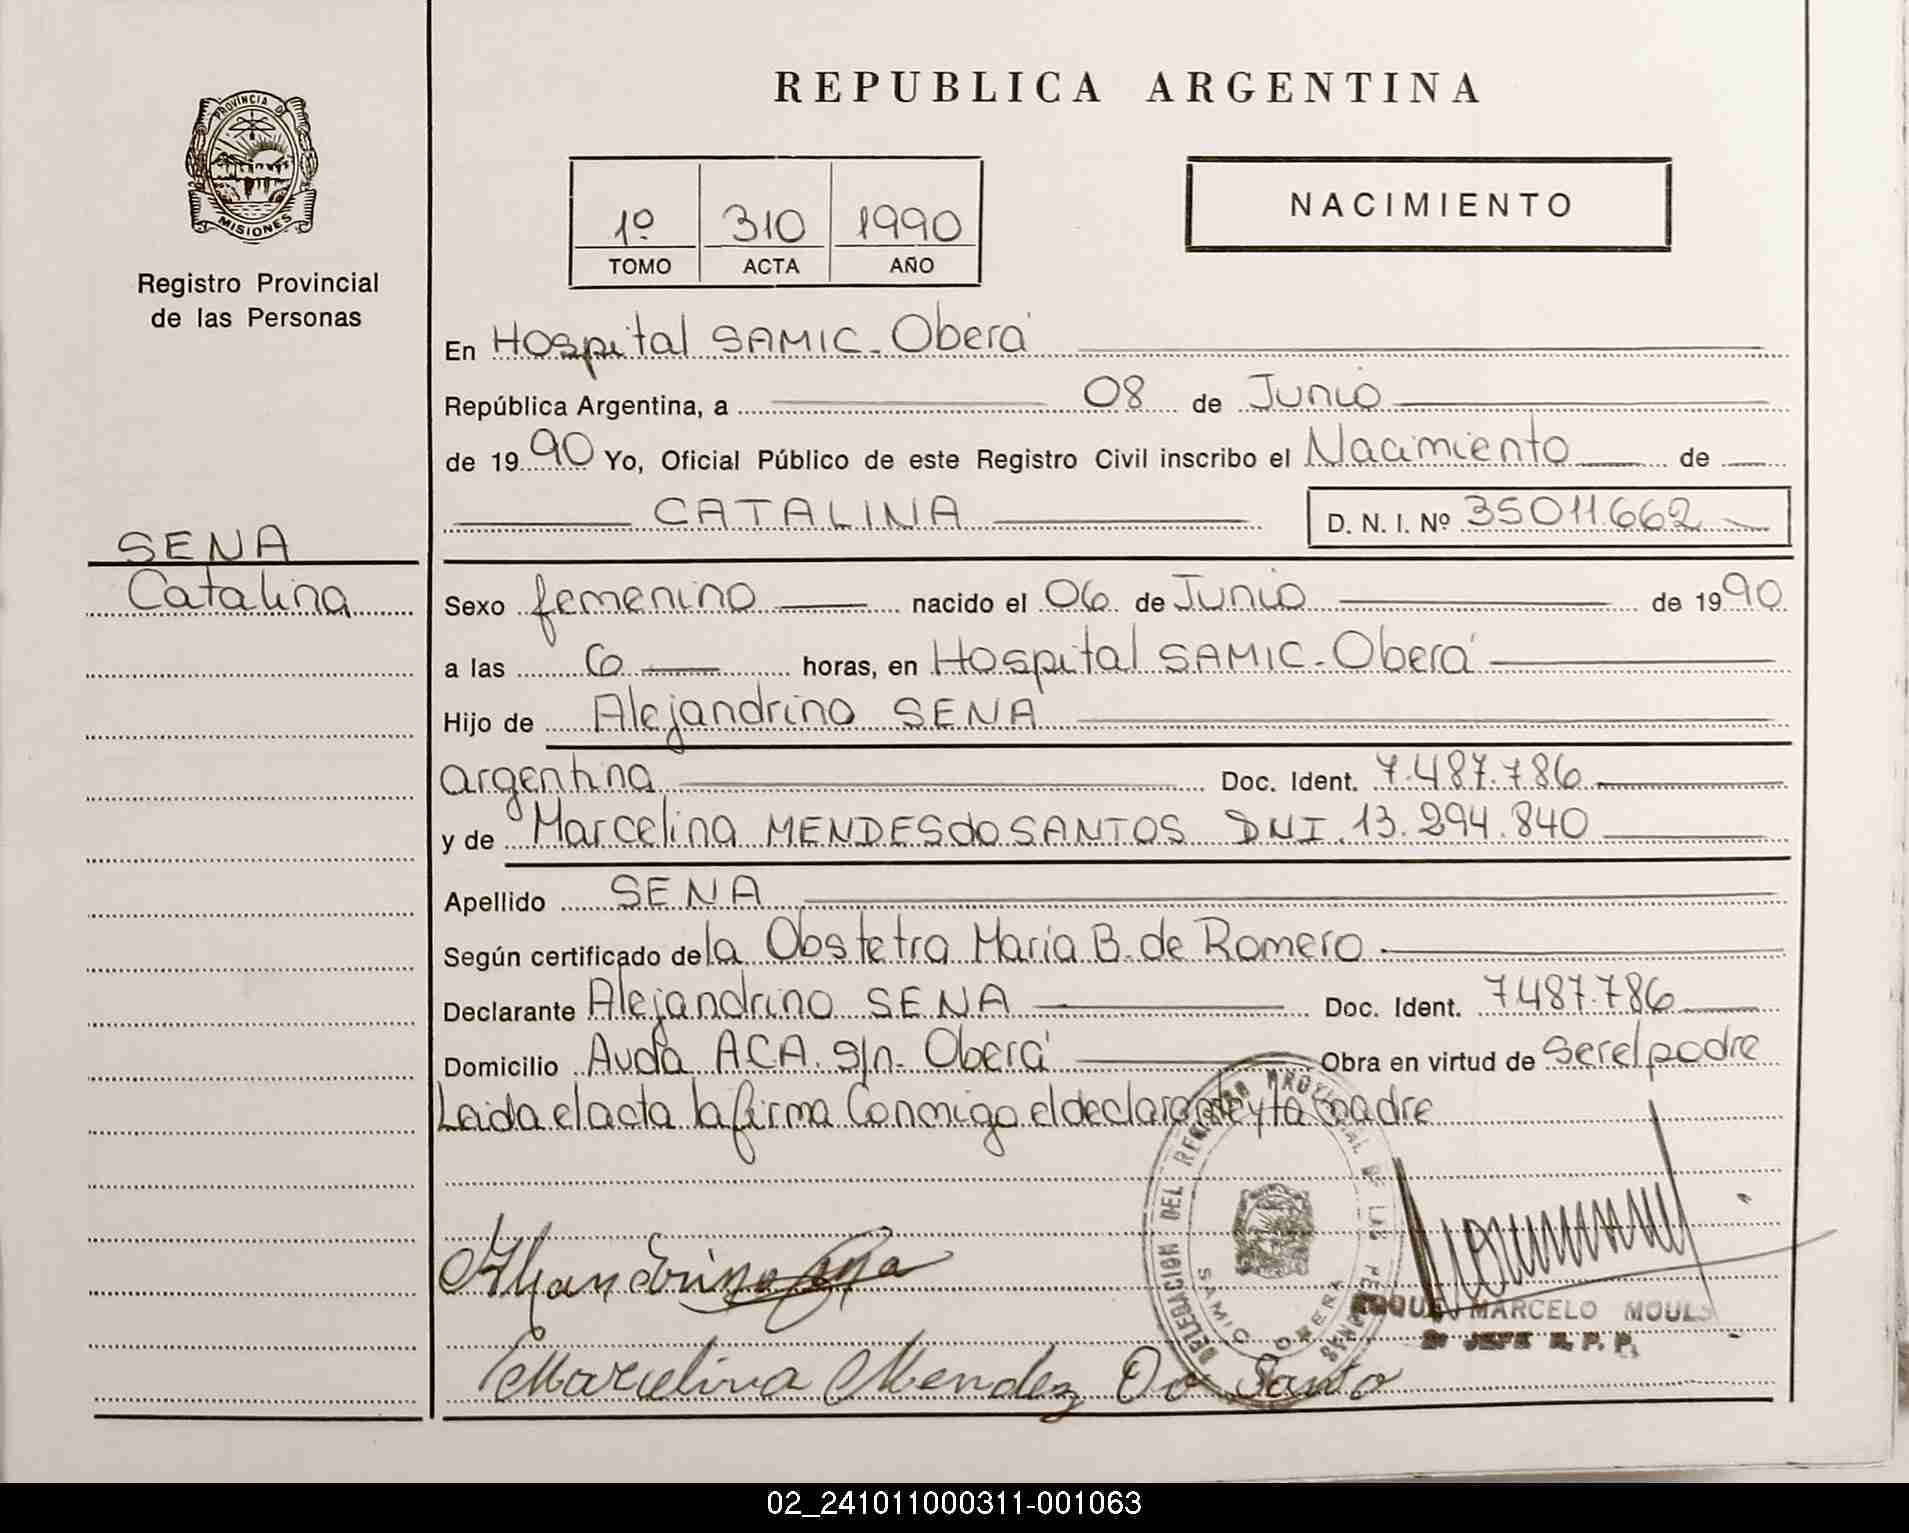 REPUBLICA ARGENTINA
PROVINCIA DE
MISIONES
Registro Provincial
de las Personas
1º 310 1990
TOMO ACTA AÑO
NACIMIENTO
En Hospital SAMIC - Oberá
República Argentina, a 08 de Junio
de 1990 Yo, Oficial Público de este Registro Civil inscribo el Nacimiento de
CATALINA D. N. I. Nº 35011662
SENA
Catalina
Sexo femenino nacido el 06 de Junio de 1990
a las 6 horas, en Hospital SAMIC - Oberá
Hijo de Alejandrino SENA
argentina Doc. Ident. 7.487.786
y de Marcelina MENDES do SANTOS DNI. 13.294.840
Apellido SENA
Según certificado de la Obstetra María B. de Romero
Declarante Alejandrino SENA Doc. Ident. 7487.786
Domicilio Avda A.C.A. s/n - Oberá Obra en virtud de ser el padre
Leida el acta la firma Conmigo el declarante y la madre
DELEGACION DEL REGISTRO PROVINCIAL DE LAS PERSONAS
SAMIC OBERA
Alejandrino Sena
ROQUE MARCELO MOULS
2º JEFE R. P. P.
Marcelina Mendez Do Santo
02_241011000311-001063